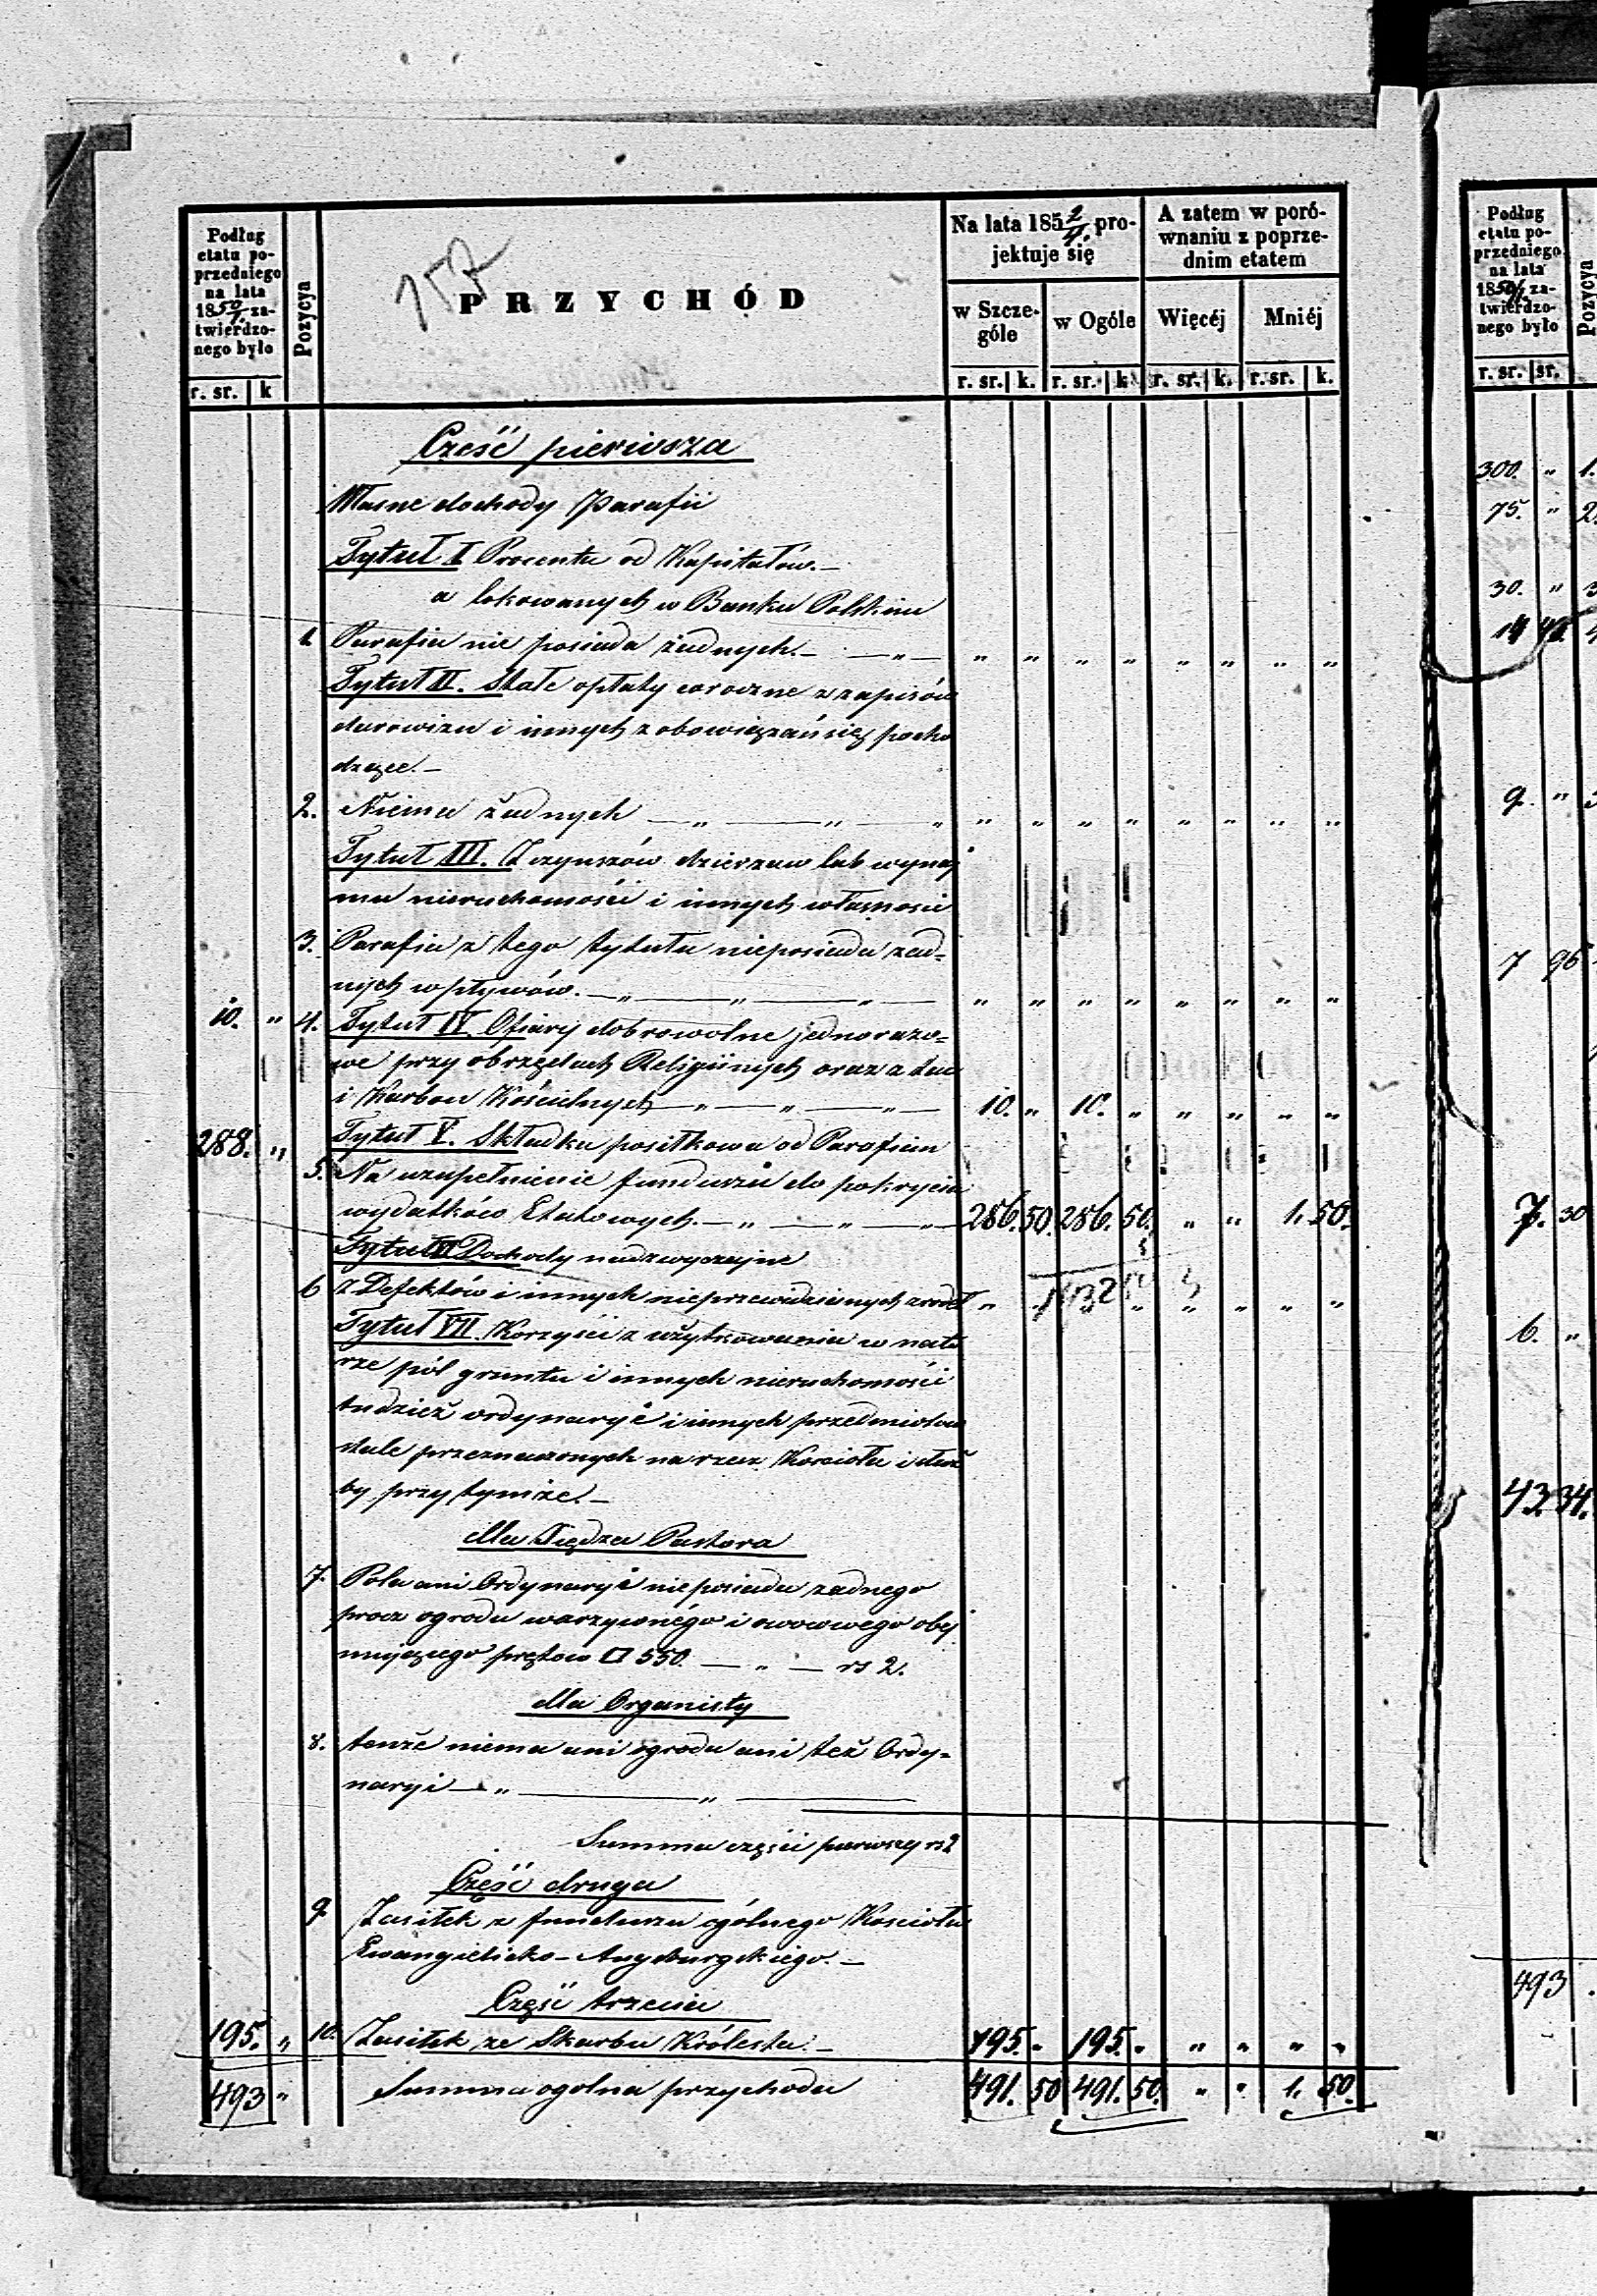 157
Podług etatu poprzedniego na lata 1850/1. zatwierdzonego było
r. sr. | k
Pozycya
PRZYCHÓD
Na lata 1852/4. projektuje się
w Szczególe
w Ogóle
r. sr. | k. | r. sr. | k.
A zatem w porównaniu z poprzednim etatem
Więcéj
Mniéj
r. sr. | k. | r. sr. | k.
Cześć pierwsza
Własne dochody Parafii
Tytuł I Procenta od Kapitałów.—
a lokowanych w Banku Polskim
1. Parafia nie posiada żadnych.— — „ — „ „ „ „ „ „ „ „
Tytuł II. Stałe opłaty coroczne z zapisów
darowizn i innych zobowiązań się pocho
dzące.—
2. Niema żadnych — „ — „ — „ „ „ „ „ „ „ „ „
Tytuł III. Z czynszów dzierzaw lub wynaj
mu nieruchomości i innych własności
3. Parafia z tego tytułu nieposiada żad=
nych wpływów. — „ — „ — „ — „ „ „ „ „ „ „ „
10. „ 4. Tytuł IV. Ofiary dobrowolne jednorazo=
we przy obrzędach Religijnych oraz z tac
i Karbon Kościelnych — „ — „ — „ — 10. „ 10. „ „ „ „ „
288. „ Tytuł V. Składka posiłkowa od Parafian
5. Na uzupełnienie funduszu do pokrycia
wydatków Etatowych. — „ — „ — „ — 286. 50. 286. 50. „ „ 1. 50.
Tytuł VI Dochody nadzwyczajne
6 Z Defektów i innych nieprzewidzianych zrodeł „ „ „ „ „ „ „
Tytuł VII. Korzyści z użytkowania w natu
rze pól gruntu i innych nieruchomości
tudzież ordynaryi i innych przedmiotow
stale przeznaczonych na rzecz Kościoła i służ
by przy tymże.—
dla Xiędza Pastora
7. Pola ani Ordynaryi nieposiada zadnego
procz ogrodu warzywnégo i owocowego obej
mującego prętow □ 550. — „ — rs 2.
dla Organisty
8. tenże niema ani ogrodu ani też Ordy=
naryi — „ — „ —
Summa części pierwszy rs 2
Część druga
9 Zasiłek z funduszu ogólnego Kościoła
Ewangielicko-Augsburgskiego.—
Część trzecia
195. „ 10. Zasiłek ze Skarbu Królestwa.— 195. „ 195. „ „ „ „ „
493 „ Summa ogolna przychodu 491. 50 491. 50. „ „ 1. 50.
Podług etatu poprzedniego na lata 1850/1. zatwierdzonego było
r. sr. | sr.
Pozycya
300. „ 1.
75. „ 2.
30. „ 3
14 4
9. „ 5
7 95
7. 30
6. „
43. 34.
493 .